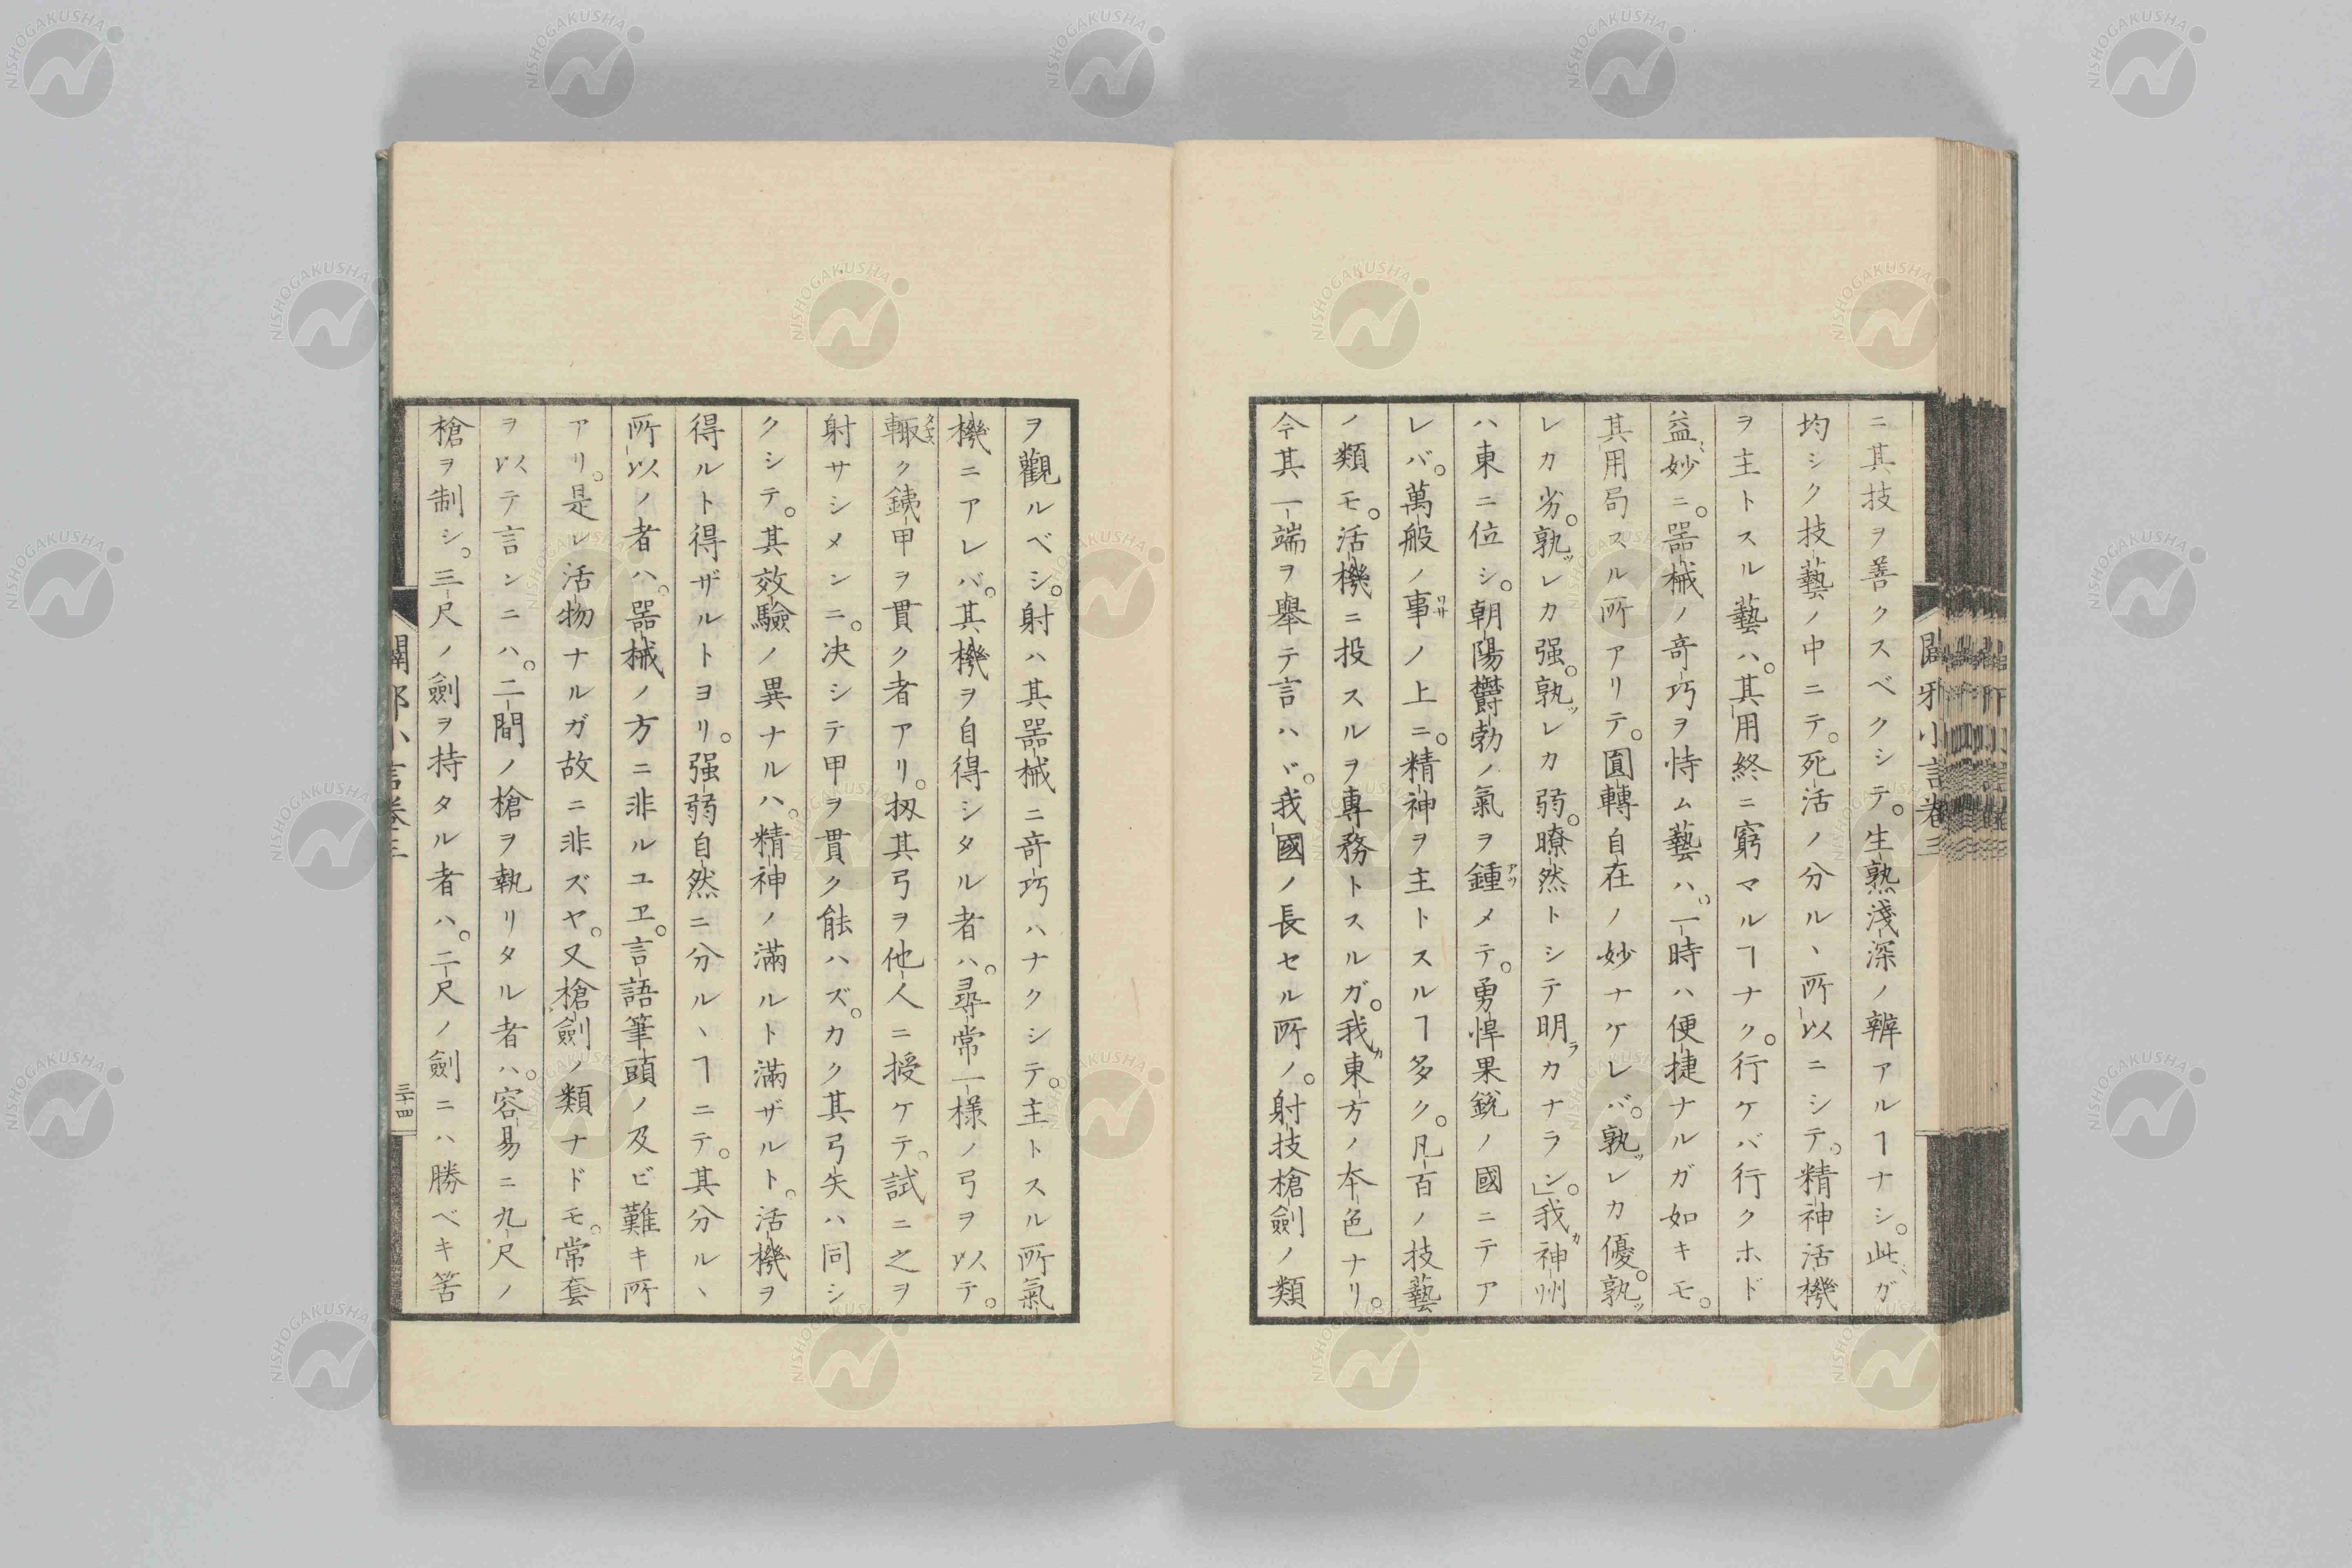 ニ其技ヲ善クスベクシテ。生熟淺深ノ辨アルヿナシ。此ガ
均シク技藝ノ中ニテ。死活ノ分ル丶所以ニシテ。精神活機
ヲ主トスル藝ハ。其用終ニ窮マルヿナク。行ケバ行クホド
益妙ニ。器械ノ奇巧ヲ恃ム藝ハ。一時ハ便捷ナルガ如キモ。
其用局スル所アリテ。圓轉自在ノ妙ナケレバ。孰ッレカ優。孰ッ
レカ劣。孰ッレカ强。孰ッレカ弱。瞭然トシテ明ラカナラン。」我カ神州
ハ東ニ位シ。朝陽欝勃ノ氣ヲ鍾アツメテ。勇悍果銳ノ國ニテア
レバ。萬般ノ事ワサノ上ニ。精神ヲ主トスルヿ多ク。凡百ノ技藝
ノ類モ。活機ニ投スルヲ專務トスルガ。我カ東方ノ本色ナリ。
今其一端ヲ舉テ言ハヾ。我國ノ長セル所ノ。射技槍劍ノ類
闢邪小言卷三
ヲ觀ルベシ。射ハ其器械ニ奇巧ハナクシテ。主トスル所氣
機ニアレバ。其機ヲ自得シタル者ハ。尋常一樣ノ弓ヲ以テ。
輙ク銕甲ヲ貫ク者アリ。扨其弓ヲ他人ニ授ケテ。試ニ之ヲ
射サシメンニ。决シテ甲ヲ貫ク能ハズ。カク其弓矢ハ同シ
クシテ。其效驗ノ異ナルハ。精神ノ滿ルト滿ザルト。活機ヲ
得ルト得ザルトヨリ。强弱自然ニ分ル丶ヿニテ。其分ル丶
所以ノ者ハ。器械ノ方ニ非ルユヱ。言語筆頭ノ及ビ難キ所
アリ。是レ活物ナルガ故ニ非ズヤ。又槍劍ノ類ナドモ。常套
ヲ以テ言ンニハ。二間ノ槍ヲ執リタル者ハ。容易ニ九尺ノ
槍ヲ制シ。三尺ノ劍ヲ持タル者ハ。二尺ノ劍ニハ勝ベキ筈
闢邪小言卷三
三十四